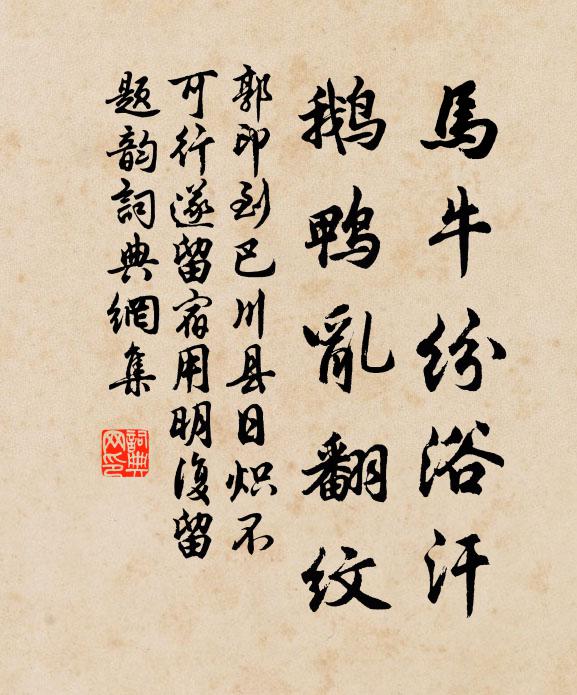 馬牛纷浴汗
鹅鸭亂翻纹
郭印到巴川县日炽不
可行遂留宿用明復留
题韵詞典網集
詞典
网印